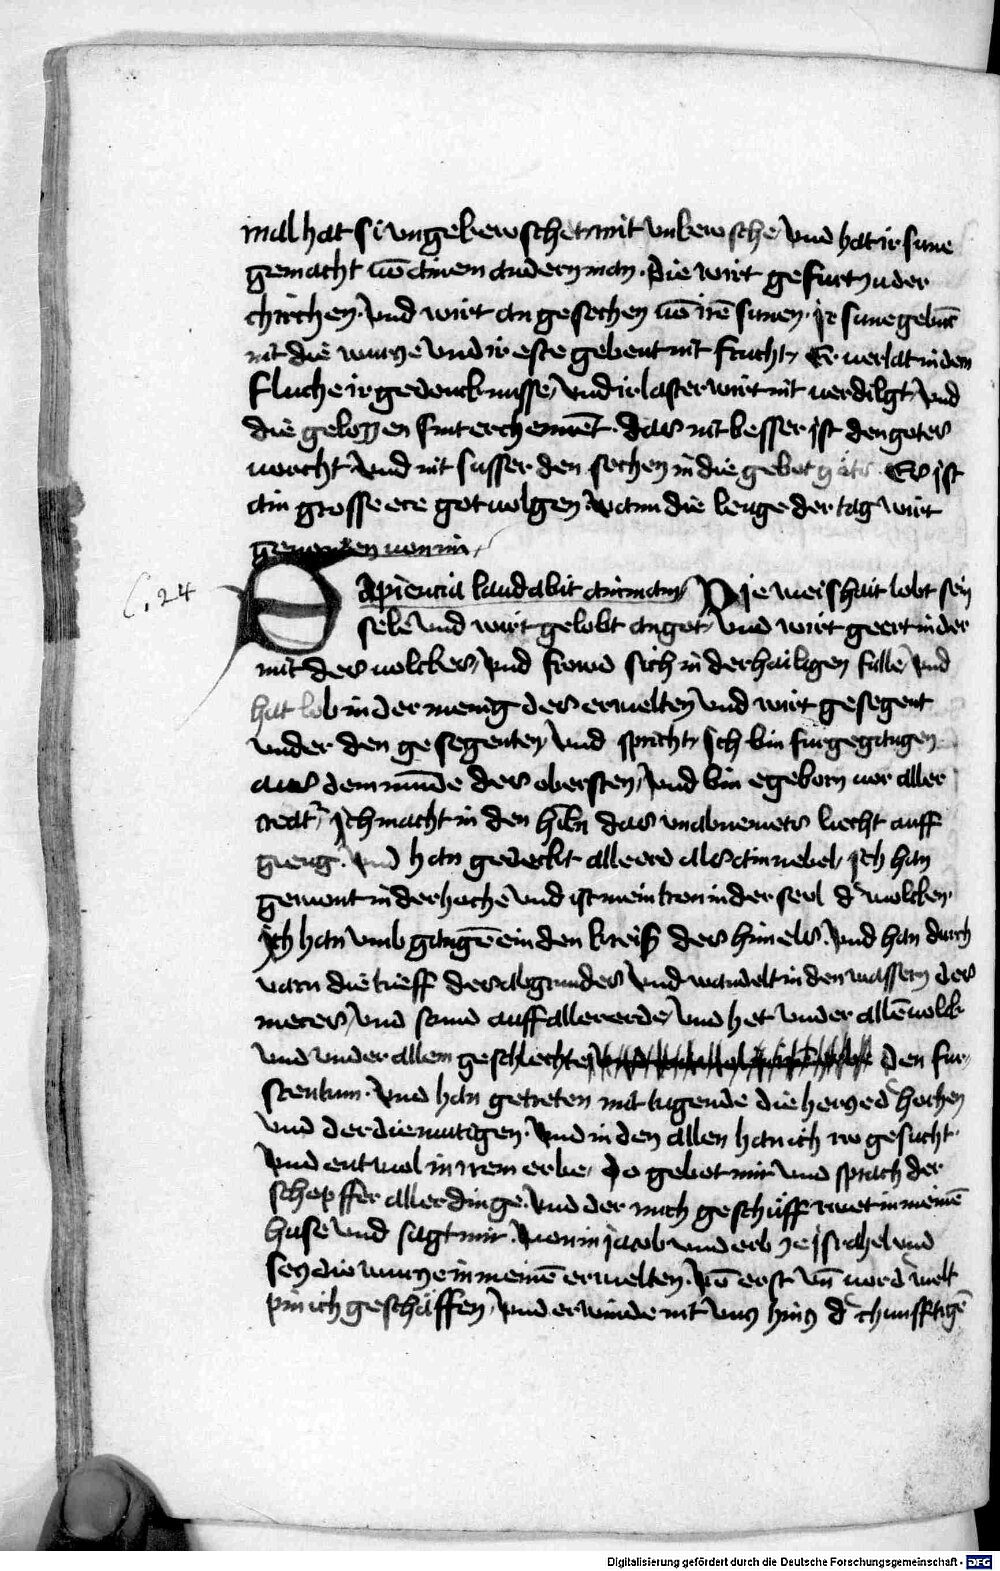 mal hat si ungekewschet mit vnkewsche vnd hat ir sune
gemacht vō ainem andern man. Die wirt gefurt zu der
chirchen. vnd wirt an gesechen vō irē sunen. Ir sune gebent
nit die wurze vnd ir este gebent nit frucht, Er verlat in dem
fluche ir gedencknusse, vnd ir laster wirt nit verdilgt, vnd
die gelozzen sint erchennēt. das nit besser ist den gotes
vorcht vnd nit susser den sechen in die gebot gots. Es ist
ain grosse ere got volgen. wann die lenge der tag wirt
genomen von im,
C. 24
Sapiencia laudabit animam, Die weishait lobt sein
sele vnd wirt gelobt an got, vnd wirt geert in der
mit des volckes, vnd frowd sich in der hailigen fulle, vnd
hat lob in der menig der erwelten, vnd wirt gesegent
vnder den gesegenten, vnd spricht, Ich bin fur gegangen
aus dem munde des obersten, vnd bin egeborn vor aller
creat', Ich macht in den hīln das vnabnemets liecht auff
gieng. vnd han gedeckt alle erd als ain nebel, Ich han
gewont in der hoche vnd ist mein tron in der sewl d' wolcken.
Ich han vmb gangē ein den kreiß des himels. vnd han durch
varn die tieff des abgrundes vnd wandelt in den wassern des
meeres, vnd stund auff aller erde, vnd het vnder allē volck
vnd vnder allem geschlechte den fur
stentum. vnd han getreten mit tugende die herzen d' hochen
vnd der diemutigen. vnd in den allen han ich rw gesucht.
vnd entwel in irem erbe, Do gebot mir vnd sprach der
schopffer aller dinge. vnd der mich geschuff ruet in meinē
huse vnd sagt mir. won in jacob vnd erb ze jsrahel vnd
sey die wurze in meinē erwelten. Vō erst vn̄ vor d' welt
pin ich geschaffen, vnd erwinde nit vnz hinz d' chunfftigē
Digitalisierung gefördert durch die Deutsche Forschungsgemeinschaft - DFG